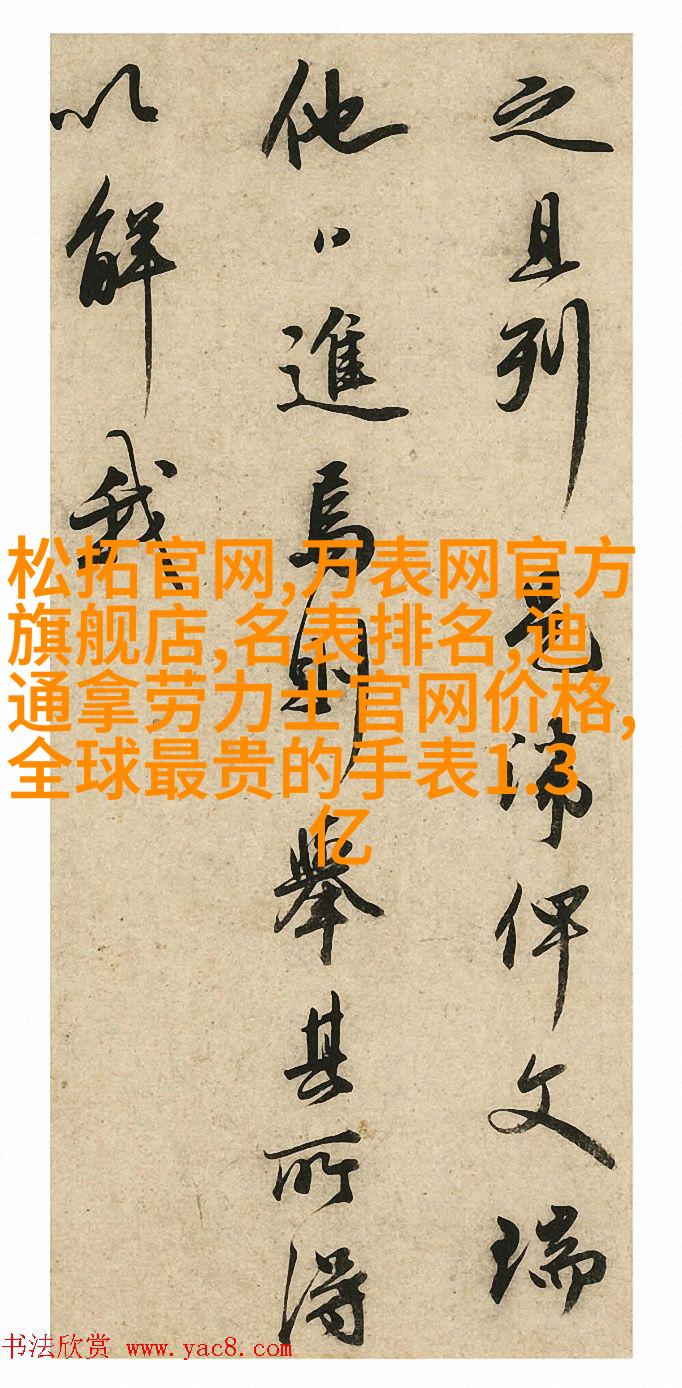 之且列諦俾文瑞
他進焉則舉其所得
以解我
松拓官网,万表网官方
旗舰店,名表排名,迪
通拿劳力士官网价格,
全球最贵的手表1.3
亿
书法欣赏 www.yac8.com